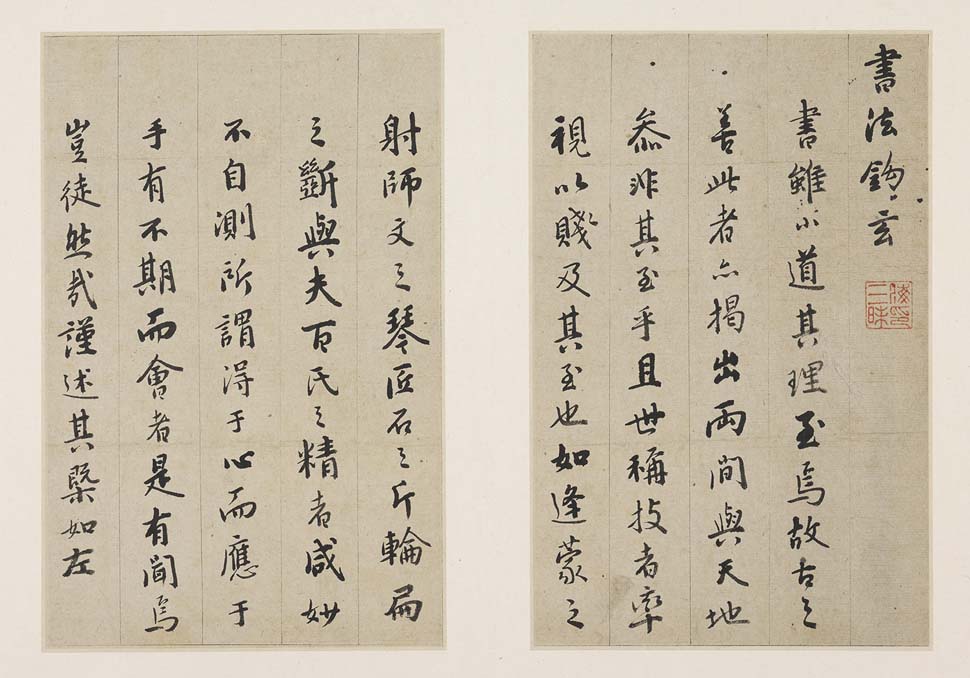 書法鈎玄
法印三昧
書雖小道其理至焉故古之
善此者亦揭出兩間與天地
參非其至乎且世稱技者率
視以賤及其至也如逢蒙之
射師文之琴匠石之斤輪扁
之斲與夫百氏之精者咸妙
不自測所謂得于心而應于
手有不期而會者是有閫焉
豈徒然哉謹述其槩如左